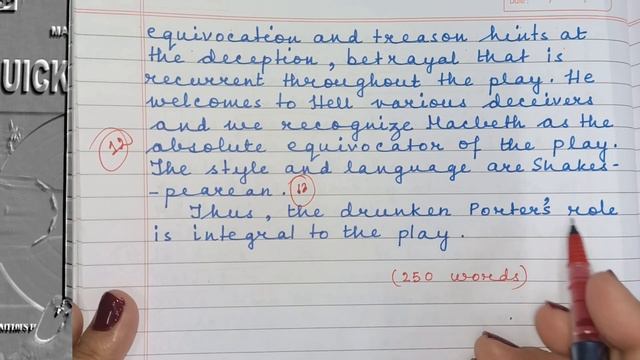 equivocation and treason hints at
the deception, betrayal that is
recurrent throughout the play. He
welcomes to Hell various deceivers
and we recognize Macbeth as the
12 absolute equivocator of the play.
The style and language are Shakes-
-pearean. 12
Thus, the drunken Porter's role
is integral to the play.
(250 words)
MA
UICK